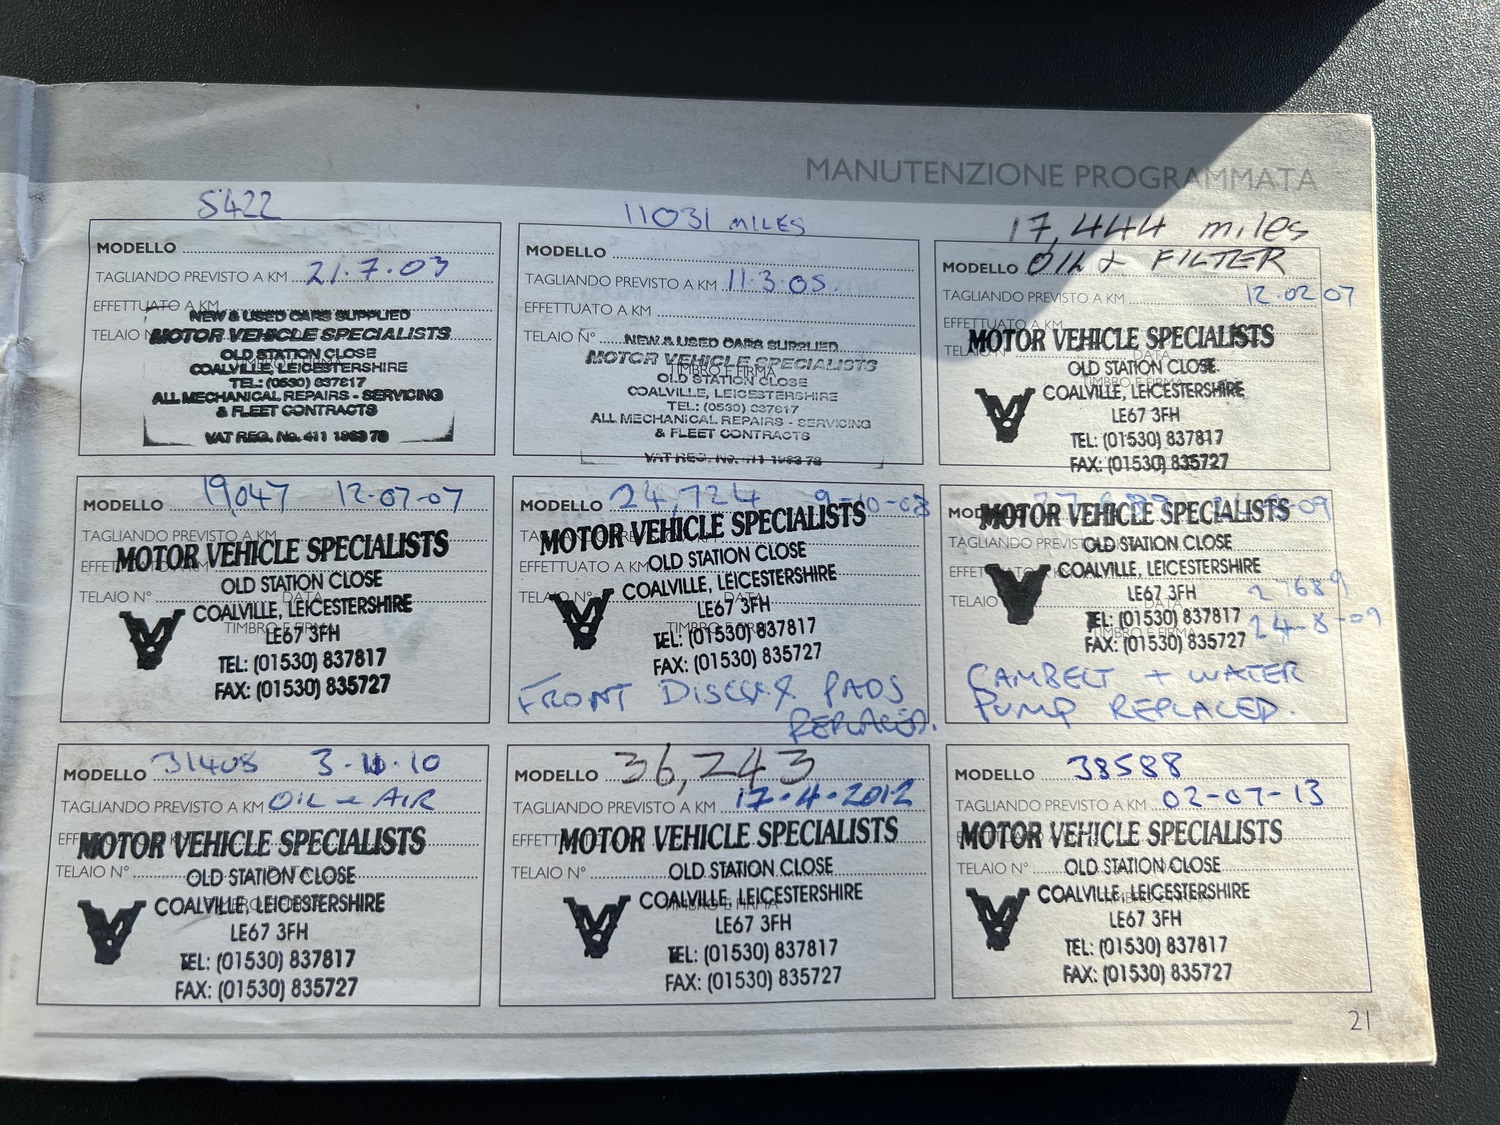 MANUTENZIONE PROGRAMMATA
5422
MODELLO
TAGLIANDO PREVISTO A KM 21.7.03
EFFETTUATO A KM
NEW & USED CARS SUPPLIED
TELAIO N°
MOTOR VEHICLE SPECIALISTS
OLD STATION CLOSE
COALVILLE, LEICESTERSHIRE
TEL: (0530) 837817
ALL MECHANICAL REPAIRS - SERVICING
& FLEET CONTRACTS
VAT REG. No. 411 1963 78
11031 MILES
MODELLO
TAGLIANDO PREVISTO A KM 11.3.05.
EFFETTUATO A KM
TELAIO N°
NEW & USED CARS SUPPLIED
MOTOR VEHICLE SPECIALISTS
TIMBRO E FIRMA
OLD STATION CLOSE
COALVILLE, LEICESTERSHIRE
TEL: (0530) 837817
ALL MECHANICAL REPAIRS - SERVICING
& FLEET CONTRACTS
VAT REG. No. 411 1963 78
17,444 miles
MODELLO OIL & FILTER
TAGLIANDO PREVISTO A KM 12.02 07
EFFETTUATO A KM
MOTOR VEHICLE SPECIALISTS
TELAIO N°
DATA
OLD STATION CLOSE
TIMBRO E FIRMA
COALVILLE, LEICESTERSHIRE
LE67 3FH
TEL: (01530) 837817
FAX: (01530) 835727
MODELLO 19047 12-07-07
TAGLIANDO PREVISTO A KM
MOTOR VEHICLE SPECIALISTS
EFFETTUATO A KM
OLD STATION CLOSE
TELAIO N°
DATA
COALVILLE, LEICESTERSHIRE
TIMBRO E FIRMA
LE67 3FH
TEL: (01530) 837817
FAX: (01530) 835727
MODELLO 24,724 9-10-08
MOTOR VEHICLE SPECIALISTS
TAGLIANDO PREVISTO A KM
EFFETTUATO A KM
OLD STATION CLOSE
COALVILLE, LEICESTERSHIRE
TELAIO N°
DATA
LE67 3FH
TIMBRO E FIRMA
TEL: (01530) 837817
FAX: (01530) 835727
FRONT DISCS & PADS
REPLACED.
MODELLO
MOTOR VEHICLE SPECIALISTS
TAGLIANDO PREVISTO
OLD STATION CLOSE
EFFETTUATO A KM
COALVILLE, LEICESTERSHIRE
27689
TELAIO
LE67 3FH
DATA
TEL: (01530) 837817
24-8-09
TIMBRO E FIRMA
FAX: (01530) 835727
CAMBELT + WATER
PUMP REPLACED.
MODELLO 31408 3.10.10
TAGLIANDO PREVISTO A KM OIL + AIR
MOTOR VEHICLE SPECIALISTS
TELAIO N°
DATA
OLD STATION CLOSE
COALVILLE, LEICESTERSHIRE
LE67 3FH
TEL: (01530) 837817
FAX: (01530) 835727
MODELLO 36,243
TAGLIANDO PREVISTO A KM 17.4.2012
MOTOR VEHICLE SPECIALISTS
TELAIO N°
OLD STATION CLOSE
COALVILLE, LEICESTERSHIRE
TIMBRO E FIRMA
LE67 3FH
TEL: (01530) 837817
FAX: (01530) 835727
MODELLO 38588
TAGLIANDO PREVISTO A KM 02-07-13
MOTOR VEHICLE SPECIALISTS
TELAIO N°
OLD STATION CLOSE
COALVILLE, LEICESTERSHIRE
LE67 3FH
TEL: (01530) 837817
FAX: (01530) 835727
21